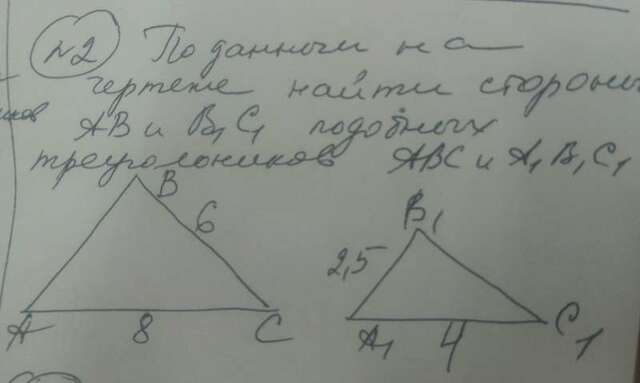 №2 По данным на
чертеже найти стороны
иков
AB и B₁C₁ подобных
треугольников ABC и A₁B₁C₁
B
6
B₁
2,5
A
8
C
A₁
4
C₁